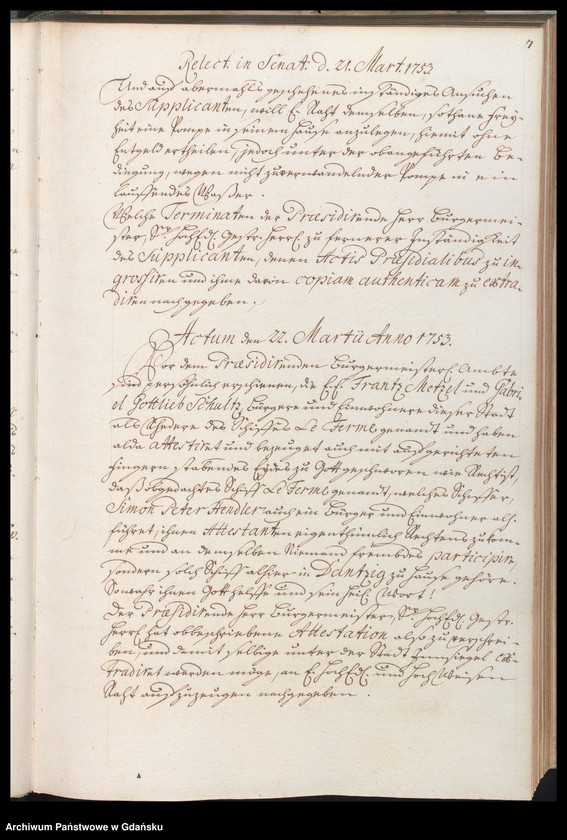 7
Relect. in Senat. d. 21. Mart. 1753
Und auf abermahls geschehenes inständiges Ansuchen
des Supplicanten, will E. Raht demselben, sothane Frey-
heit eine Pompe in seinem Hause anzulegen, hiemit ohne
Entgeld ertheilen, jedoch unter der obangeführten Be-
dingung, wegen nicht zu verwandelnder Pompe in ein
lauffendes Waßer.
Welche Terminaten der Præsidirende Herr Bürgermei-
ster, Sr. HochEdl. Gestr. Herrl. zu fernerer Inständigkeit
des Supplicanten, denen Actis Præsidialibus zu in-
grossiren und ihme davon copiam authenticam zu extra-
diren nachgegeben.
Actum den 22. Martii Anno 1753.
Vor dem Præsidirenden Bürgermeisterl. Ambte
sind persöhnlich erschienen, die E.E. Frantz Metzel und Gabri-
el Gottlieb Schultz Bürgere und Einwohnere dieser Stadt
als Rhedere des Schiffes Le Ferme genandt und haben
alda attestiret und bezeuget auch mit aufgerichteten
Fingern stabendes Eydes zu Gott geschworen wie Rechtist,
daß obgedachtes Schiff Le Ferme genandt, welches Schiffer
Simon Peter Hendler auch ein Bürger und Einwohner alh.
führet, ihnen Attestanten eigenthümlich Rechtens zukom-
me und an demselben Niemand frembdes participire,
sondern solch Schiff alhier in Dantzig zu Hause gehöre.
So wahr ihnen Gott helffe und sein heil. Wort!
Der Præsidirende Herr Bürgermeister, Sr. HochEdl. Gestr.
Herrl. hat obbeschriebene Attestation also zu verschrei-
ben, und damit selbige unter der Stadt Innsiegel ex-
tradiret werden möge, an E. HochEdl. und Hoch Weisen
Raht aus zuzeugen nachgegeben.
Archiwum Państwowe w Gdańsku